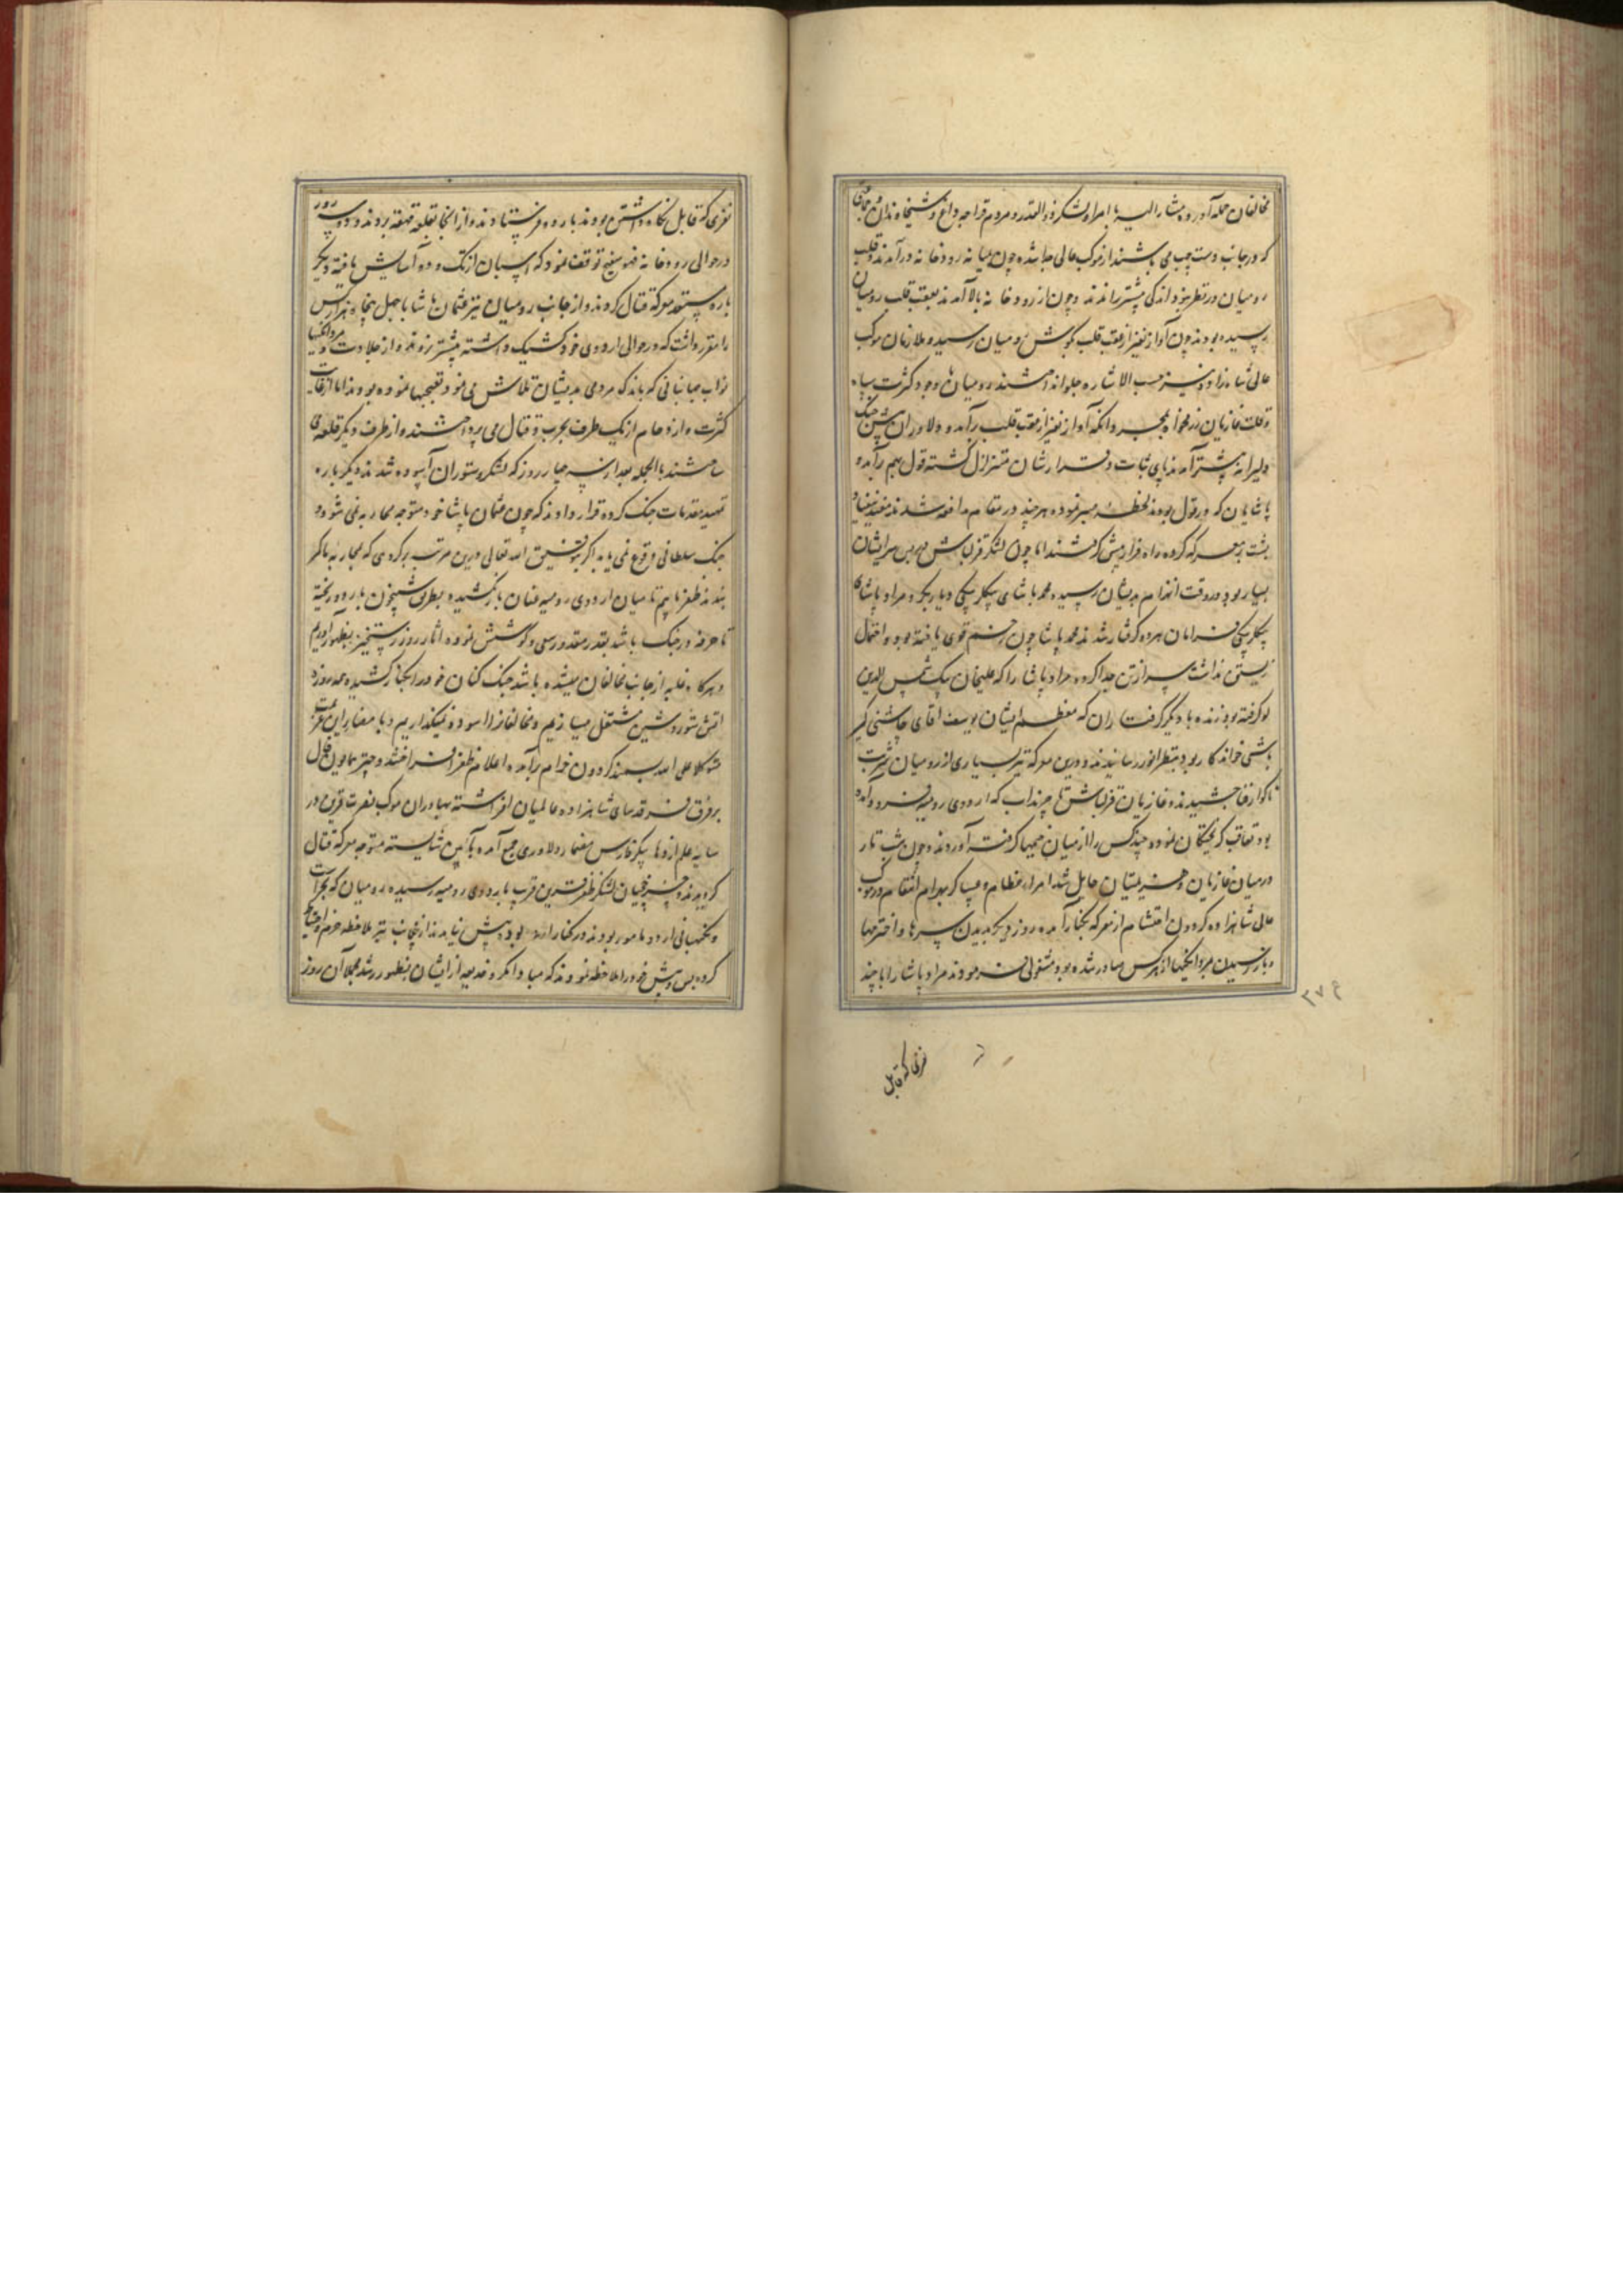 مخالفان حمله آورده مشار الیه با امرا و لشکر ذوالقدر و مردم قراجه داغ و شیخاوندان و
که در جانب دست چپ می باشند از موکب عالی جدا شده چون میانه رودخانه درآمدند قلب
رومیان در نظر بود اندکی پیشتر راندند و چون از رودخانه بالا آمدند بعقب قلب رومیان
رسیده بودند چون آواز نفیر از عقب قلب بگوش رومیان رسید و ملازمان موکب
عالی شاهزاده نیز حسب الاشاره جلو انداختند رومیان با وجود کثرت سپاه
و قلت غازیان رزمخواه بمجرد آنکه آواز نفیر از عقب قلب برآمد و دلاوران پیش جنک
دلیرانه پیشتر آمدند پای ثبات و قرارشان متزلزل کشته قول بهم برآمد و
پاشایان که در قول بودند لحظه صبر نموده هر چند در مقام مدافعه شدند مفید نیفتاد
پشت بمعرکه کرده راه فرار پیش کرفتند اما چون لشکر قزلباش
بسیار بود در وقت انهزام بدیشان رسیده محمد پاشای بیکلربیکی دیار بکر و مراد پاشای
بیکلربیکی قرامان هر دو کرفتار شدند محمد پاشا چون زخم قوی یافته بود و احتمال
زیستن نداشت سر از تن جدا کرده مراد پاشا را که علیخان بیک شمس الدین
لو کرفته بود زنده با دیگر کرفتاران که معظم ایشان یوسف آقای چاشنی کیر
باشی خواندکار بود بنظر انور رسانیدند و درین معرکه نیز بسیاری از رومیان شربت
ناکوار فنا چشیدند و غازیان قزلباش تا چرنداب که اردوی رومیه فرود آمده
بود تعاقب کریختکان نموده چند کس را از میان خیمها کرفته آوردند و چون شب تار
در میان غازیان و هزیمتیان حایل شد امراء عظام و عساکر بهرام انتقام در موکب
عالی شاهزاده کردون احتشام از معرکه بکنار آمده روز دیگر بدیدن سرها و اخترمها
و بازرسیدن مردانکیها که از هر کس صادر شده بود مشغولی فرمودند مراد پاشا را با چند
۳۷۴
نفری که قابل
نفری که قابل نکاه داشتن بودند باردو فرستادند و از آنجا بقلعه قهقهه بردند و دو سه روز
در حوالی رودخانه فهوسفنج توقف نمود که اسپان از تک و دو آسایش یافته دیگر
باره مستعد معرکه قتال کردند و از جانب رومیان نیز عثمان پاشا با چهل پنجاه هزار کس
را مقرر داشت که در حوالی اردوی خود کشیک داشته پیشتر نروند و از جلادت و مردانکیها
نواب جهانبانی که باندک مردمی بدیشان تلاش می نمود تعجبها نموده بودند اما از غایت
کثرت و ازدحام از یک طرف بحرب و قتال می پرداختند و از طرف دیگر قلعه می
ساختند بالجمله بعد از سه چهار روز که لشکر و ستوران آسوده شدند دیگر باره
تمهید مقدمات جنک کرده قرار دادند که چون عثمان پاشا خود متوجه محاربه نمی شود و
جنک سلطانی وقوع نمی یابد اکر بتوفیق الله تعالی درین مرتبه بر کروهی که بمحاربه ما کمر
بندند ظفر یابیم تا میان اردوی رومیه عنان باز نکشیده بطریق شبیخون باردو ریخته
تا صرفه در جنک باشد بقدر مقدور سعی و کوشش نموده آثار روز رستخیز بظهور آوریم
و هرکاه غلبه از جانب مخالفان بیشتر باشد جنک کنان خود را بکنار کشیده همه روزه
آتش شور و شین مشتعل میسازیم و مخالفان را آسوده نمیکذاریم
متوکلا علی الله بسمند کردون خرام برآمده اعلام ظفر افراختند و چتر همایون فال
بر فرق فرقدسای شاهزاده عالمیان افراشته بهادران موکب نصرت قرین در
سایه علم اژدها پیکر فارس مضمار دلاوری جمع آمده بآیین شایسته متوجه معرکه قتال
کردیدند و چرخچیان لشکر ظفر قرین قریب باردوی رومیه رسیده رومیان که بحراست
و نکهبانی اردو مامور بودند در کنار اردو بوده پیش نیامدند از آنجانب نیز ملاحظه حزم و احتیاط
کرده پس و پیش خود را ملاحظه نمودند که مبادا مکر و خدیعه از ایشان بظهور رسد مجملا آن روز